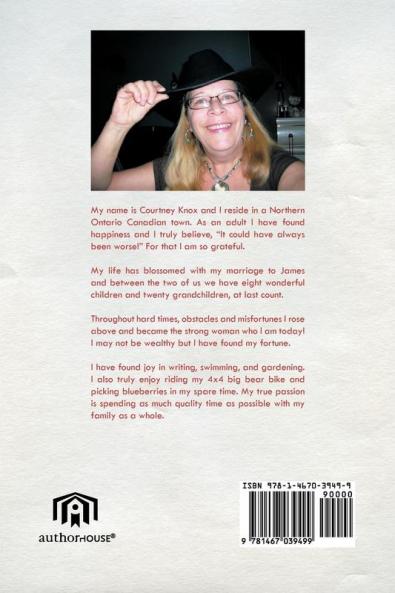 My name is Courtney Knox and I reside in a Northern
Ontario Canadian town. As an adult I have found
happiness and I truly believe, “It could have always
been worse!” For that I am so grateful.
My life has blossomed with my marriage to James
and between the two of us we have eight wonderful
children and twenty grandchildren, at last count.
Throughout hard times, obstacles and misfortunes I rose
above and became the strong woman who I am today!
I may not be wealthy but I have found my fortune.
I have found joy in writing, swimming, and gardening.
I also truly enjoy riding my 4x4 big bear bike and
picking blueberries in my spare time. My true passion
is spending as much quality time as possible with my
family as a whole.
ISBN 978-1-4670-3949-9
90000
9 781467 039499
authorHOUSE®